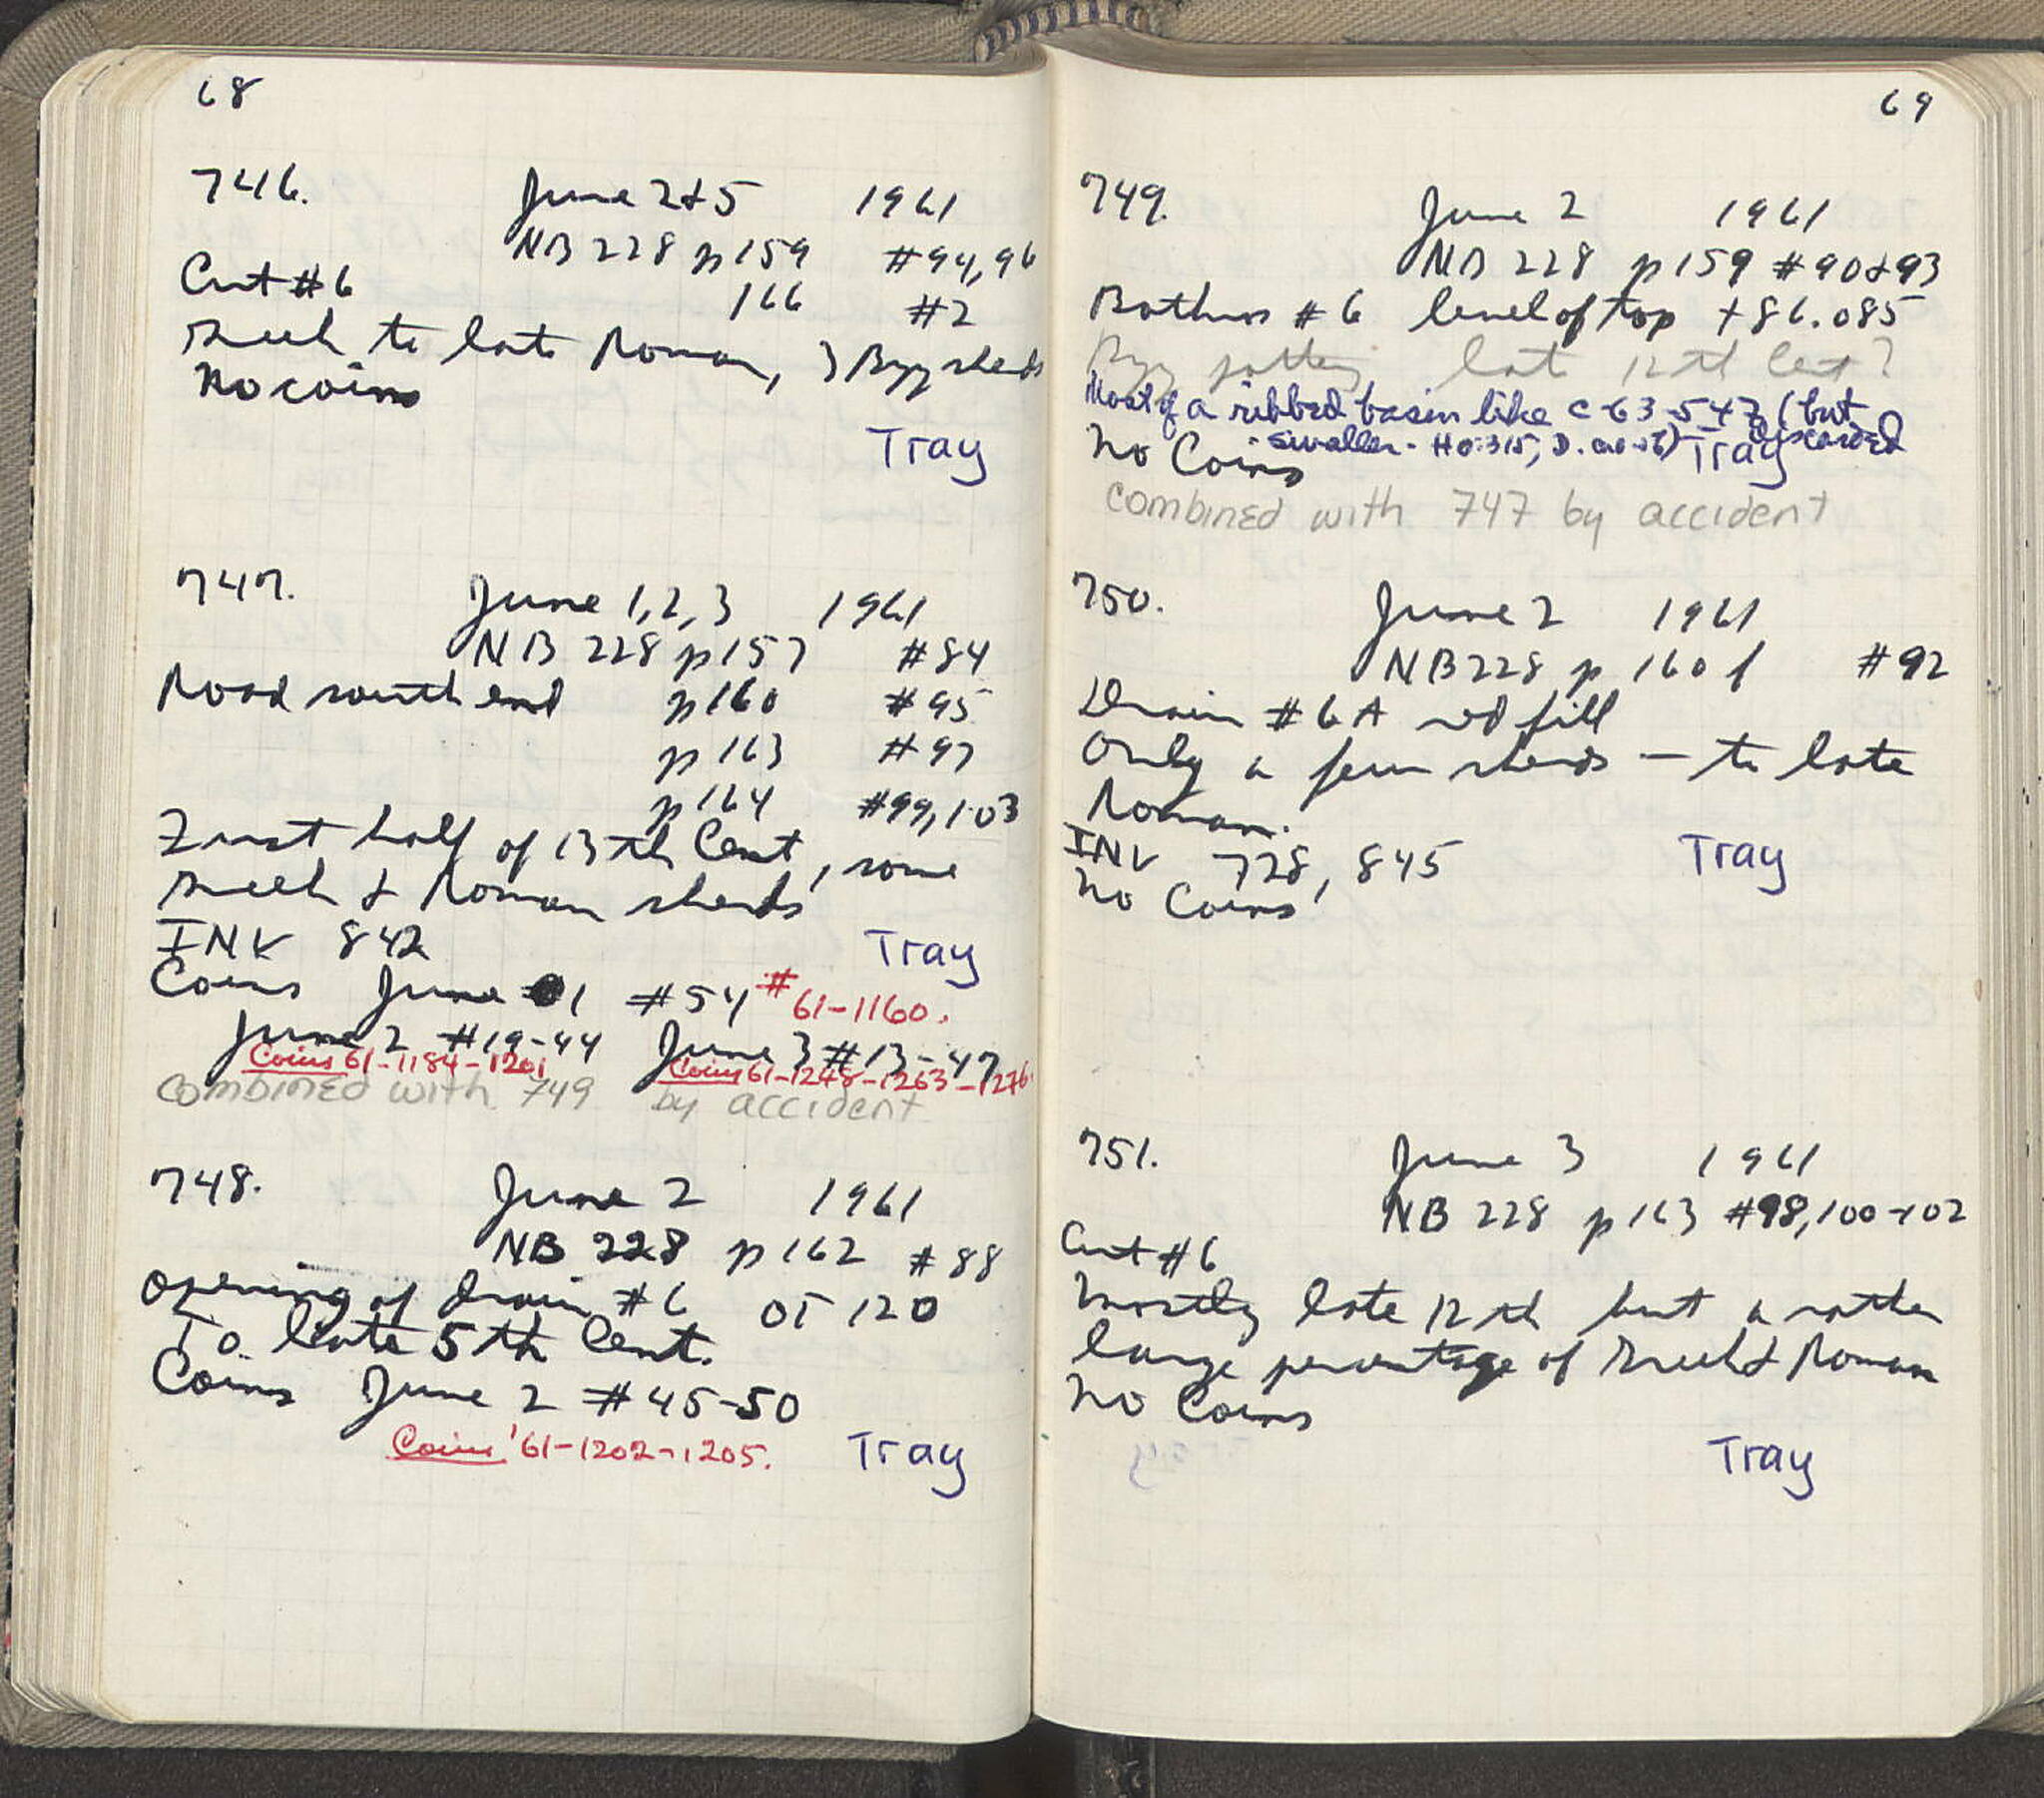 68
746. June 2&5 1961
NB 228 p159 #94,96
Cut #6 166 #2
Greek to late Roman, 3 Byz sherds
No coins
Tray
747. June 1,2,3 1961
NB 228 p157 #84
Road south end p160 #95
p163 #97
p164 #99,103
First half of 13th Cent, some
Greek & Roman sherds
INV 842 Tray
Coins June 1 #54 #61-1160.
June 2 #19-44 June 3 #13-47
Coins 61-1184-1201 Coins 61-1248-1263-1276
combined with 749 by accident
748. June 2 1961
NB 228 p162 #88
Opening of drain #6 OT 120
To late 5th Cent.
Coins June 2 #45-50
Coins '61-1202-1205. Tray
69
749. June 2 1961
NB 228 p159 #90&93
Bothros #6 level of top +86.085
Byz pottery late 12th Cent?
Most of a ribbed basin like C-63-547 (but
smaller - H 0.315, D. discarded
No Coins Tray
combined with 747 by accident
750. June 2 1961
NB 228 p 160 f #92
Drain #6A red fill
Only a few sherds — to late
Roman.
INV 728, 845 Tray
No Coins
751. June 3 1961
NB 228 p163 #98,100-102
Cut #6
Mostly late 12th but a rather
large percentage of Greek & Roman
No Coins
Tray